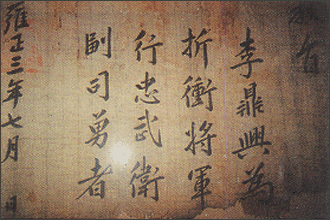 敎旨
李鼎興為
折衝將軍
行忠武衛
副司勇者
雍正三年七月 日